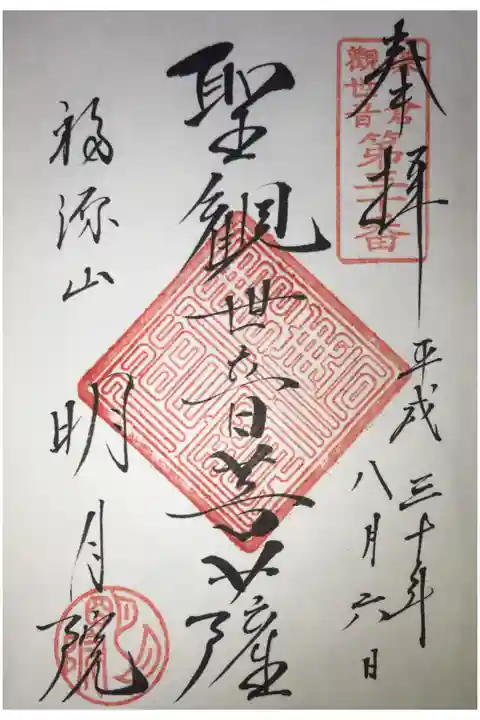 奉拝
鎌倉
観世音
第三十番
平成三十年
八月六日
聖観世音菩薩
福源山
明月院